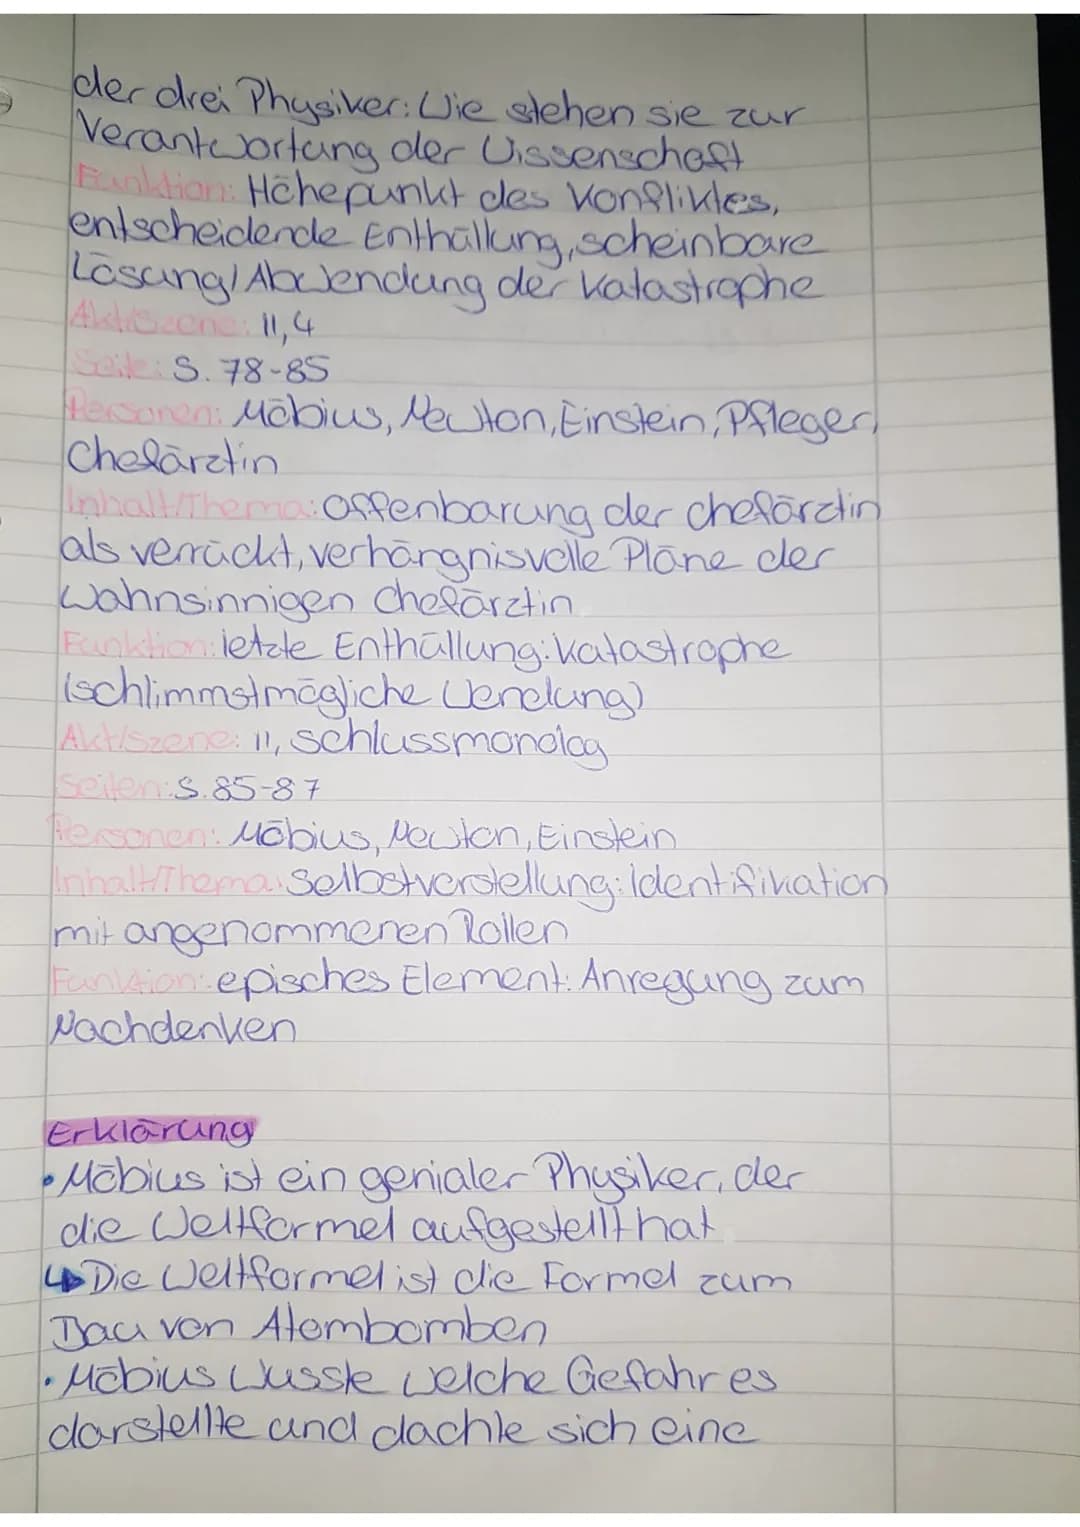 der drei Physiker: Wie stehen sie zur
Verantwortung der Wissenschaft
Funktion: Höhepunkt des Konfliktes,
entscheidende Enthüllung, scheinbare
Lösung/Abwendung der Katastrophe
Akt/Szene: 11,4
Seite: S. 78-85
Personen: Möbius, Newton, Einstein, Pfleger,
Chefärztin
Inhalt/Thema: Offenbarung der chefärztin
als verrückt, verhängnisvolle Pläne der
wahnsinnigen Chefärztin
Funktion: letzte Enthüllung: Katastrophe
(schlimmstmögliche Wendung)
Akt/Szene: 11, Schlussmonolog
Seiten: S. 85-87
Personen: Möbius, Newton, Einstein
Inhalt/Thema: Selbstverstellung: Identifikation
mit angenommenen Rollen
Funktion: episches Element: Anregung zum
Nachdenken
Erklärung
• Möbius ist ein genialer Physiker, der
die Weltformel aufgestellt hat
↳ Die Weltformel ist die Formel zum
Bau von Atombomben
• Möbius wusste welche Gefahr es
darstellte und dachte sich eine